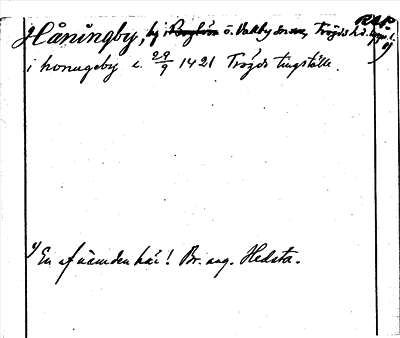 RAP.
Håningby, by i ö. Vakby sn, Trögds hd.
i honugeby c. 29/9 1421 Trögds tingställe.
1) En af nämnden här! Br. ang. Hedsta.